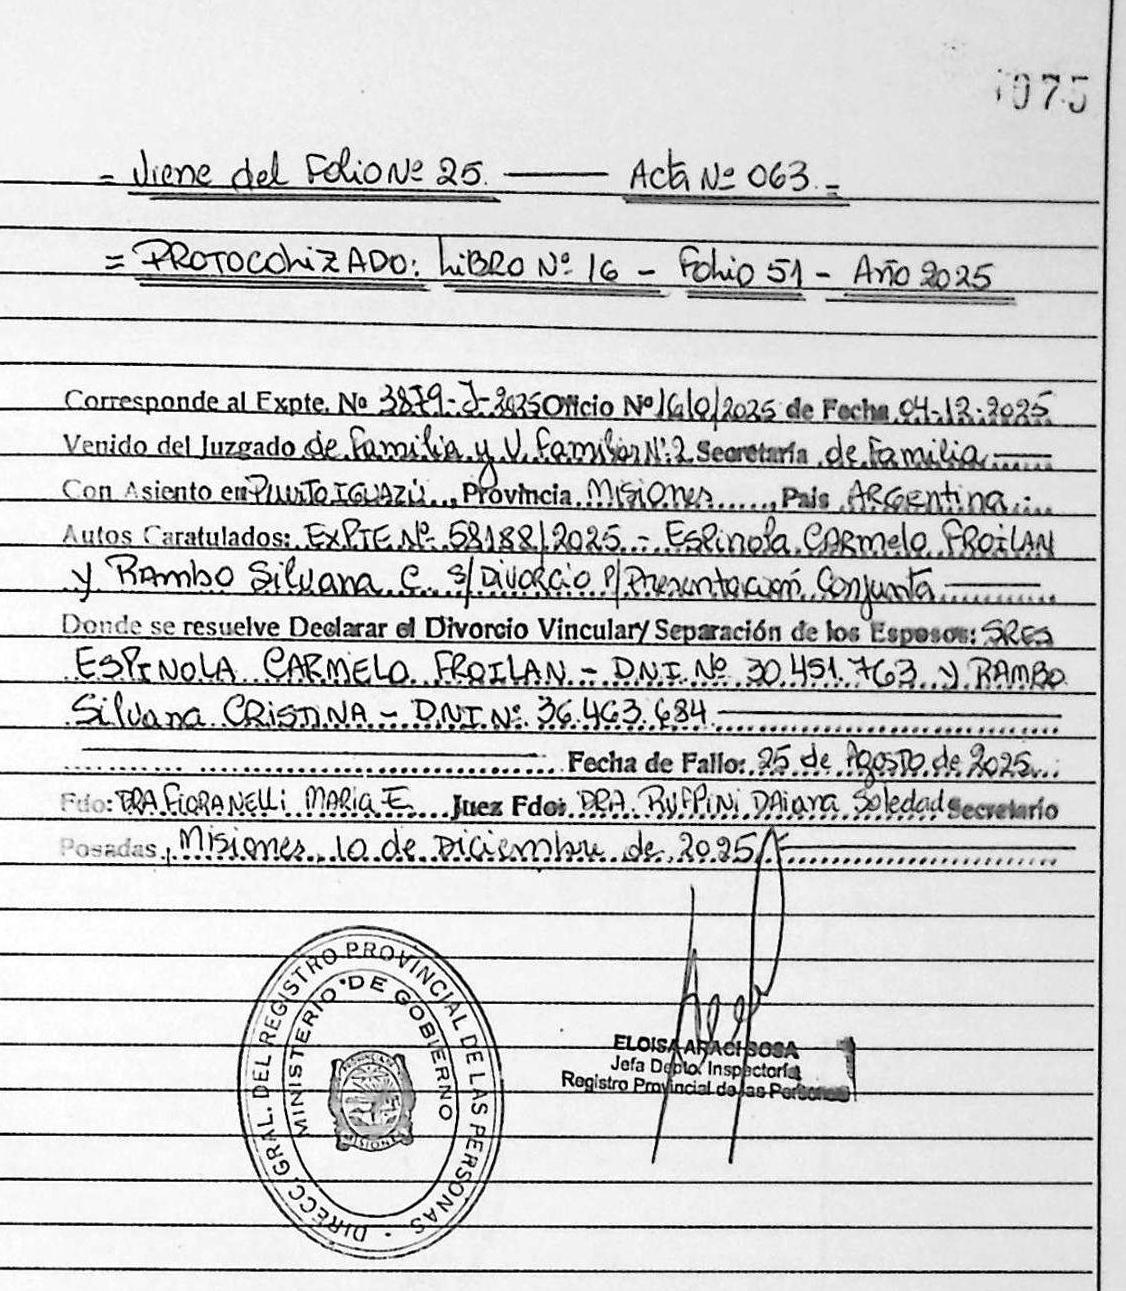 1075
= Viene del Folio Nº 25. ——— Acta Nº 063.=
= PROTOCOLIZADO: LIBRO Nº 16 - Folio 51 - Año 2025
Corresponde al Expte. Nº 3879-J-2025 Oficio Nº 1610/2025 de Fecha 04-12-2025
Venido del Juzgado de Familia y V. Familiar Nº 2 Secretaría de Familia
Con Asiento en Puerto IGUAZÚ, Provincia Misiones, Pais ARGentina
Autos Caratulados: EXPTE Nº 58188/2025 - Espinola CARMelo FROILAN
y Rambo Silvana C. S/ Divorcio P/ Presentación Conjunta
Donde se resuelve Declarar el Divorcio Vincular/ Separación de los Esposos: SRES
ESPINOLA CARMELO FROILAN - D.N.I. Nº 30.451.763 y RAMBO
Silvana CRISTINA - D.N.I Nº 36.463.684
Fecha de Fallo: 25 de Agosto de 2025
Fdo: DRA FIORANELLI MARIA E. Juez Fdo: DRA. RUFFINI DAiana Soledad Secretario
Posadas, Misiones, 10 de Diciembre de 2025
DIRECC. GRAL. DEL REGISTRO PROVINCIAL DE LAS PERSONAS
MINISTERIO DE GOBIERNO
MISIONES
ELOISA ARACI SOSA
Jefa Depto. Inspectoría
Registro Provincial de las Personas